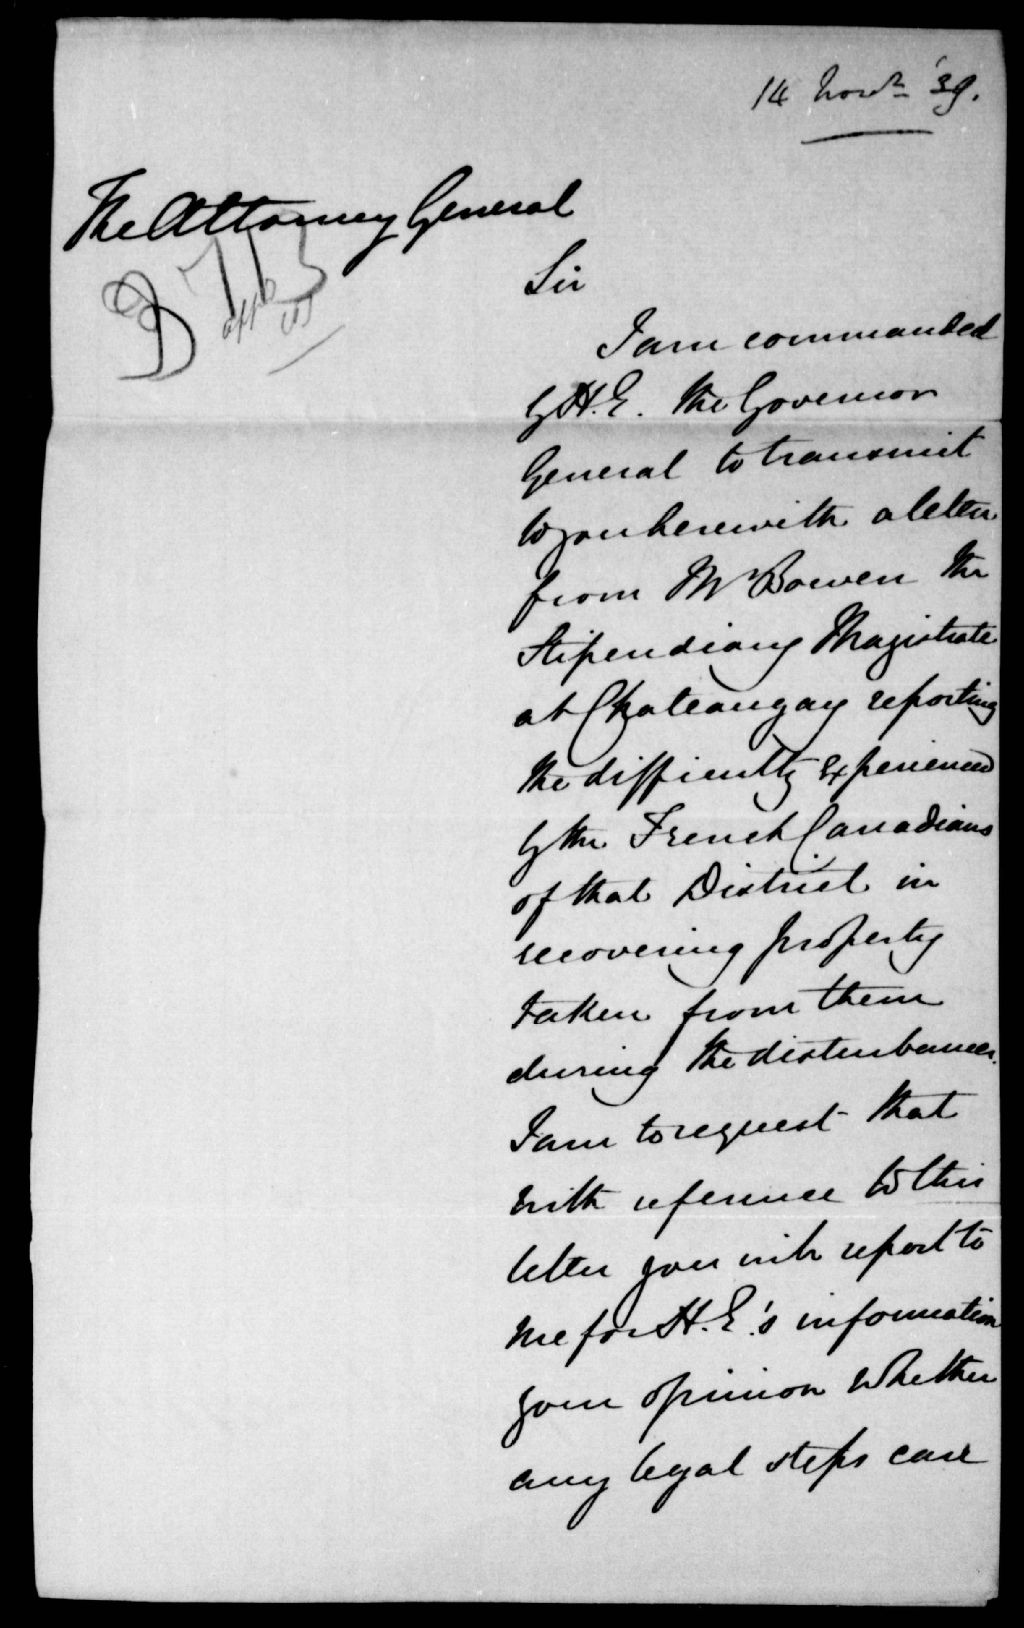 14 Novr '39.
The Attorney General
Sir
I am commanded
by H.E. the Governor
General to transmit
to you herewith a letter
from Mr Bowen the
Stipendiary Magistrate
at Chateaugay reporting
the difficulty experienced
by the French Canadians
of that District in
recovering property
taken from them
during the disturbances.
I am to request that
with reference to this
letter you will report to
me for H.E.'s information
your opinion whether
any legal steps can